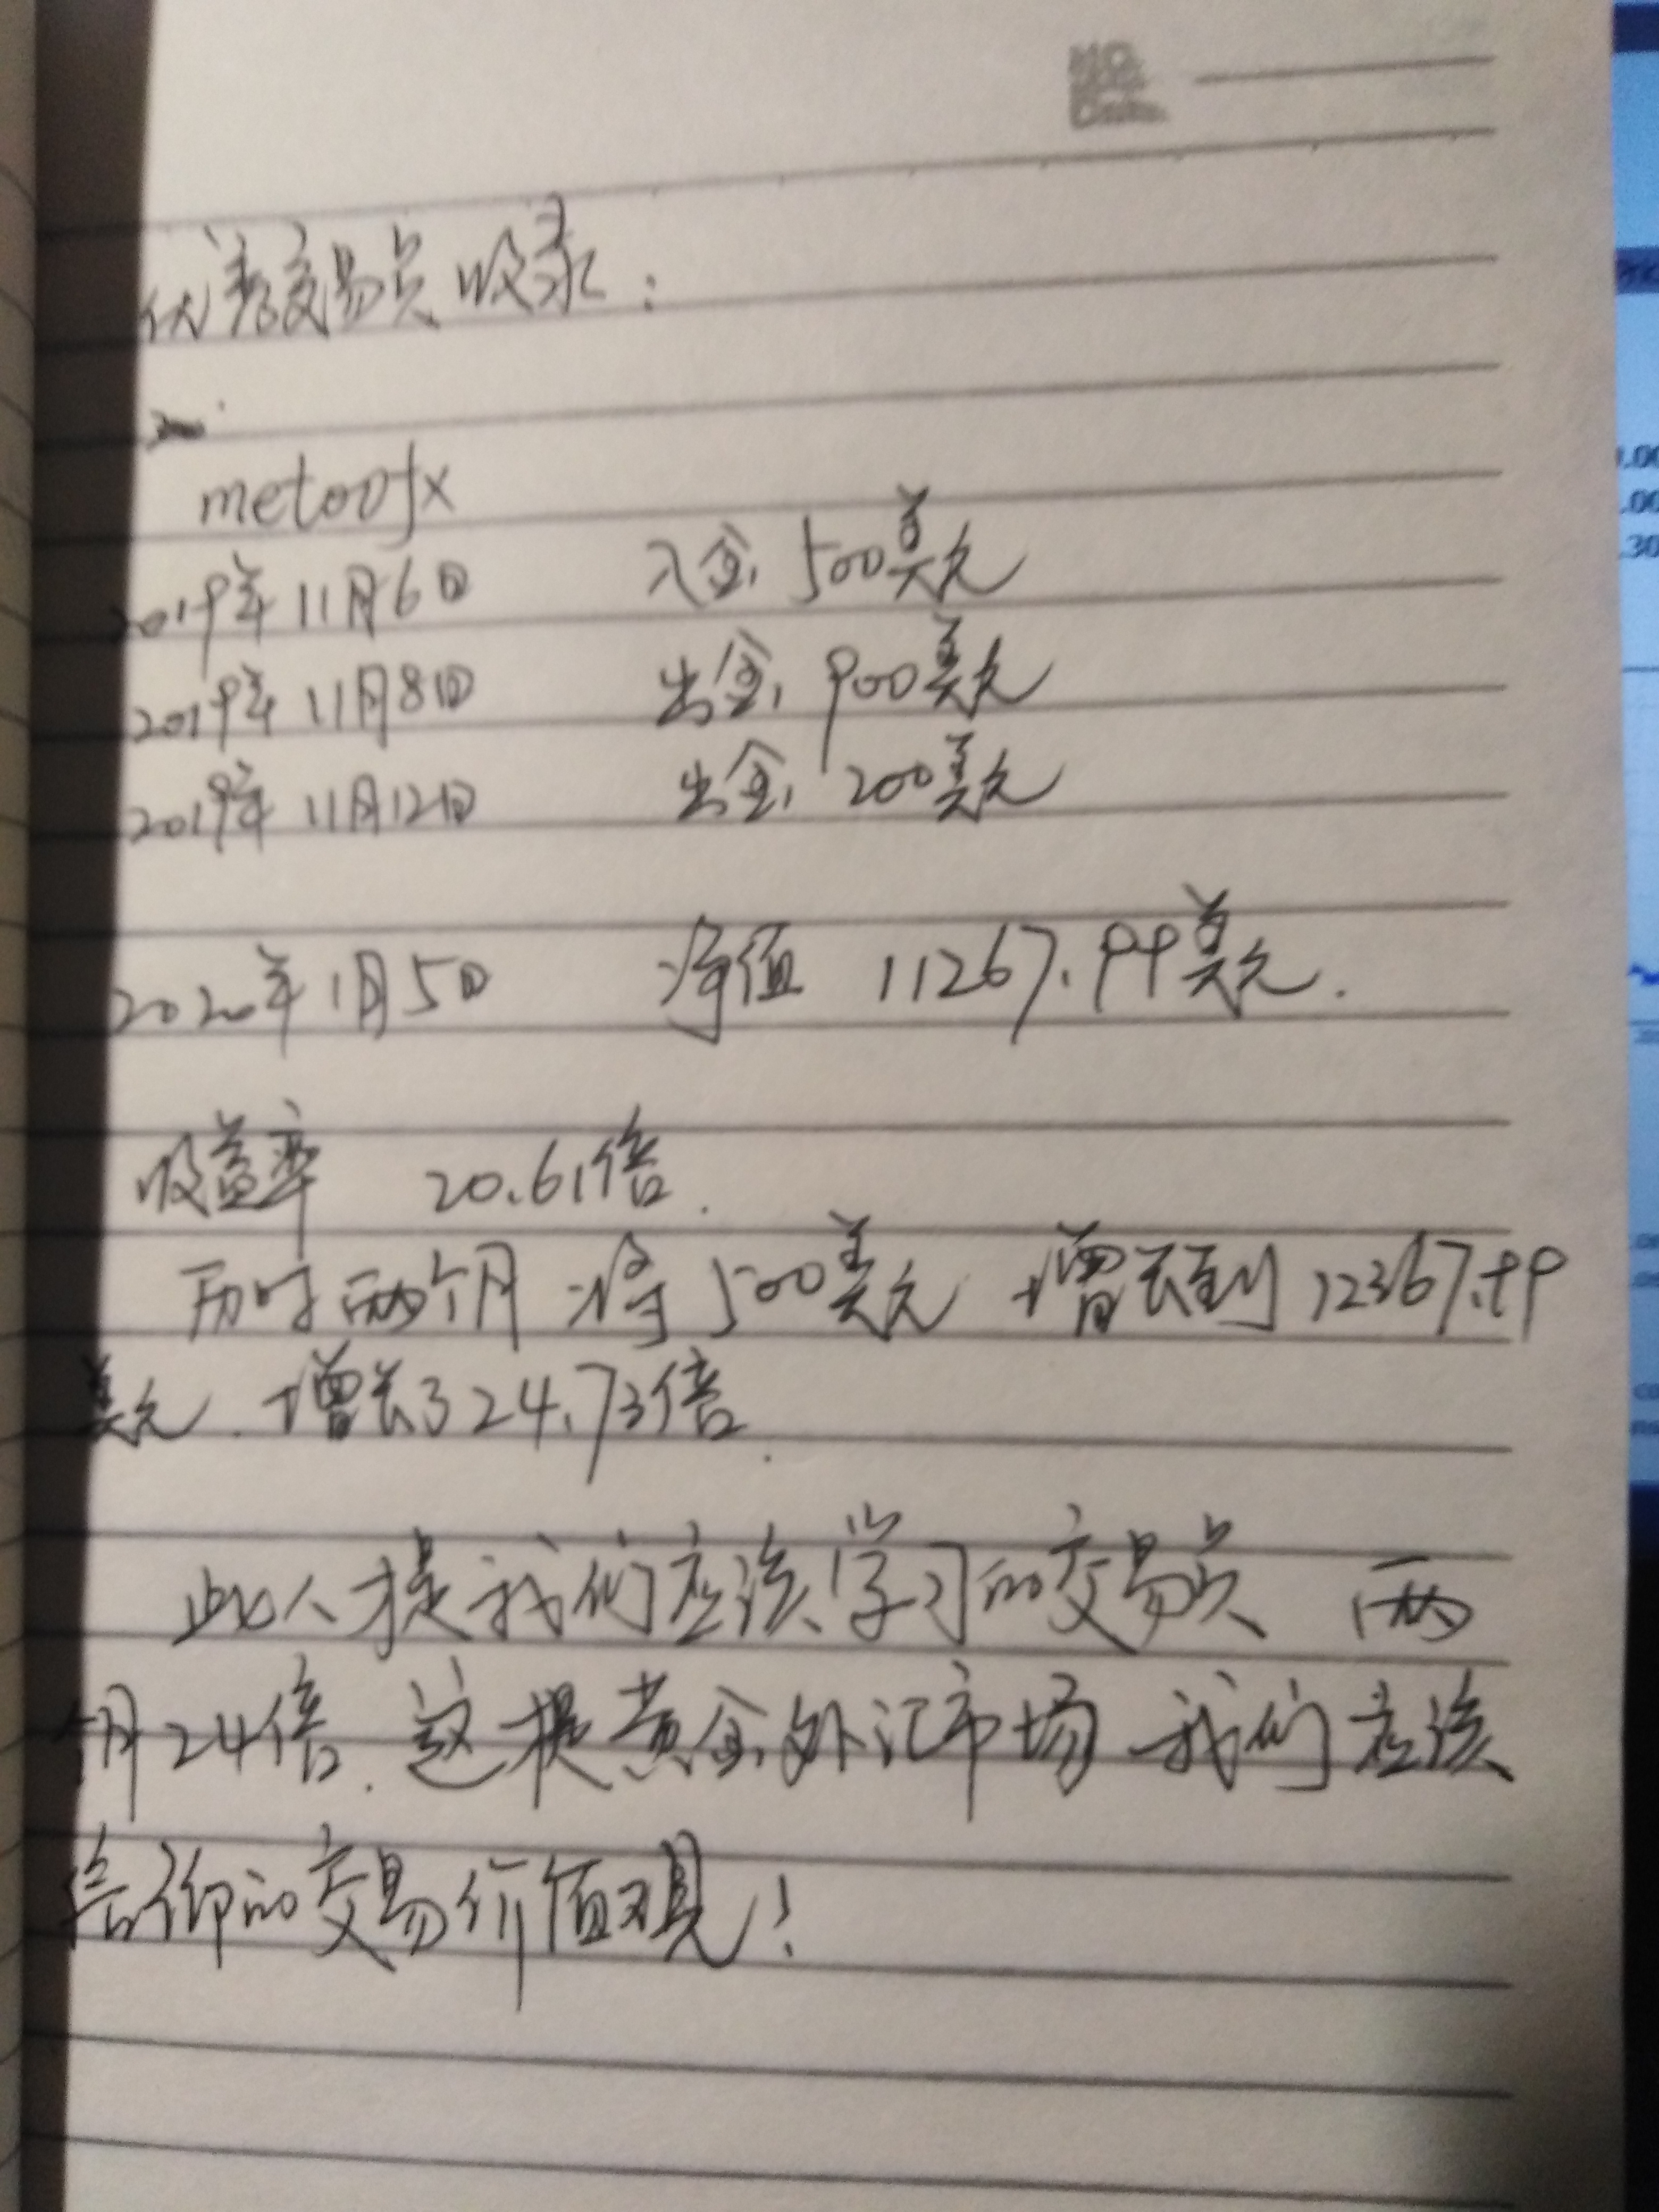 优秀交易员收录：
metoofx
2019年11月6日 入金 500美元
2019年11月8日 出金 900美元
2019年11月12日 出金 200美元
2020年1月5日 净值 11267.99美元.
收益率 20.61倍.
历时两个月 将500美元 增长到12367.99
美元. 增长了24.73倍.
此人才是我们应该学习的交易员 两
个月24倍. 这才是黄金外汇市场 我们应该
信仰的交易价值观！